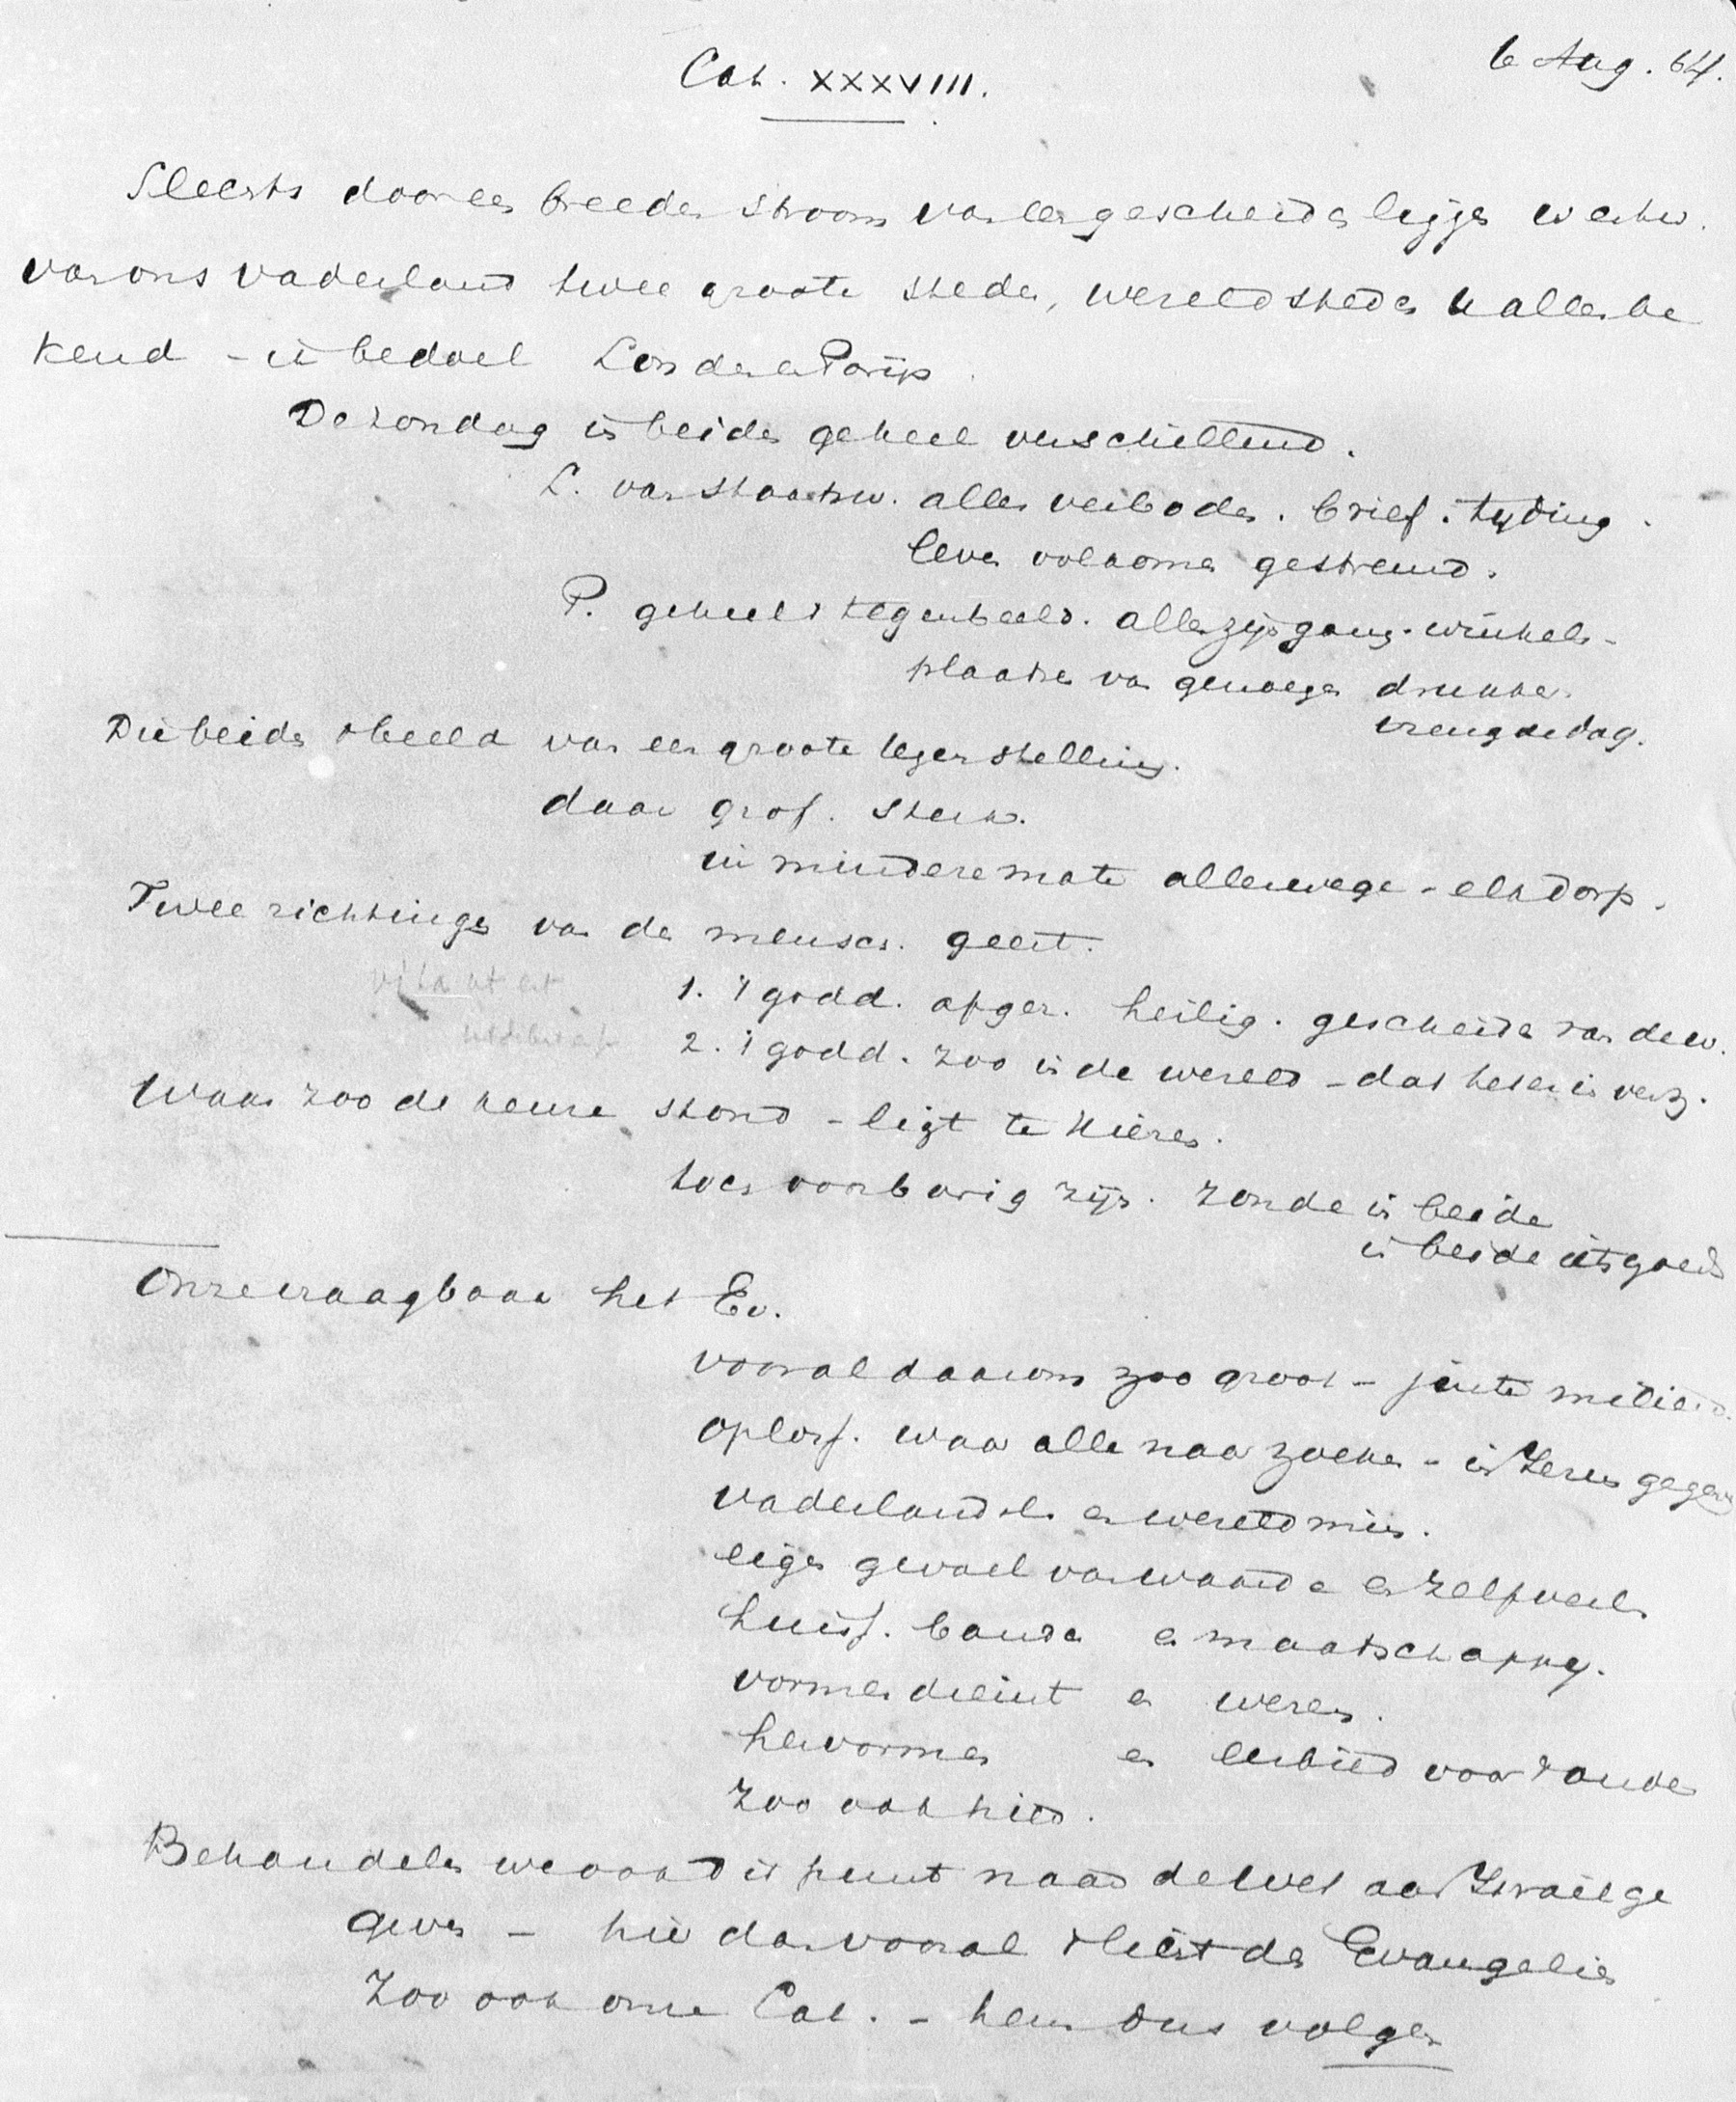 6 Aug. 64.
Cat. XXXVIII.
Slechts door een breeden stroom van een gescheiden liggen westw.
van ons vaderland twee groote steden, wereldsteden U allen be
kend - ik bedoel Londen en Parijs.
De Zondag in beiden geheel verschillend.
L. van staatsw. alles verboden. brief. tyding.
leven volkomen gestremd.
P. geheel 't tegenbeeld. alles zijn gang. winkels -
plaatsen van genoegen drukke.
vreugdedag.
Die beiden 't beeld van een groote tegenstelling.
daar grof. sterk.
in mindere mate allerwege - elk dorp.
Twee richtingen van den mensch. geest.
1. 't godd. afger. heilig. gescheiden van de w.
2. 't godd. zoo in de wereld - dat het er in verz.
Waar zoo de keuze stond - ligt te kiezen.
toch voorbarig zijn. zonde in beide
in beide iets goeds
Onze vraagbaar het Ev.
vooral daarom zoo groot - juiste midden
oploss. waar alle naar zoeken - in Jezus gegeven
vaderlandsl. en wereldmin.
eigen gevoel van waarde en zelfverl.
huiss. banden en maatschappy.
vormendienst en wezen.
hervormen en eerbied voor 't oude
zoo ook hier.
Behandelen we ook dit punt naar de wet aan Israël ge
geven - hier dan vooral 't licht des Evangelies
Zoo ook onze Cat. - hem dus volgen